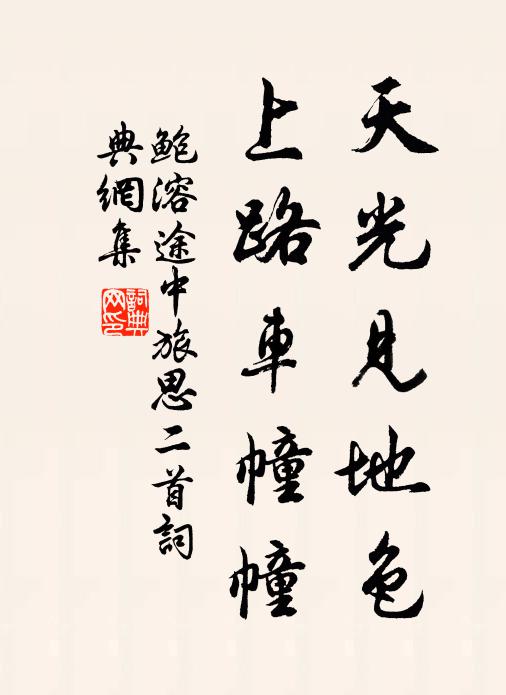 天光見地色
上路車幢幢
鲍溶途中旅思二首詞
典網集
詞典
网印